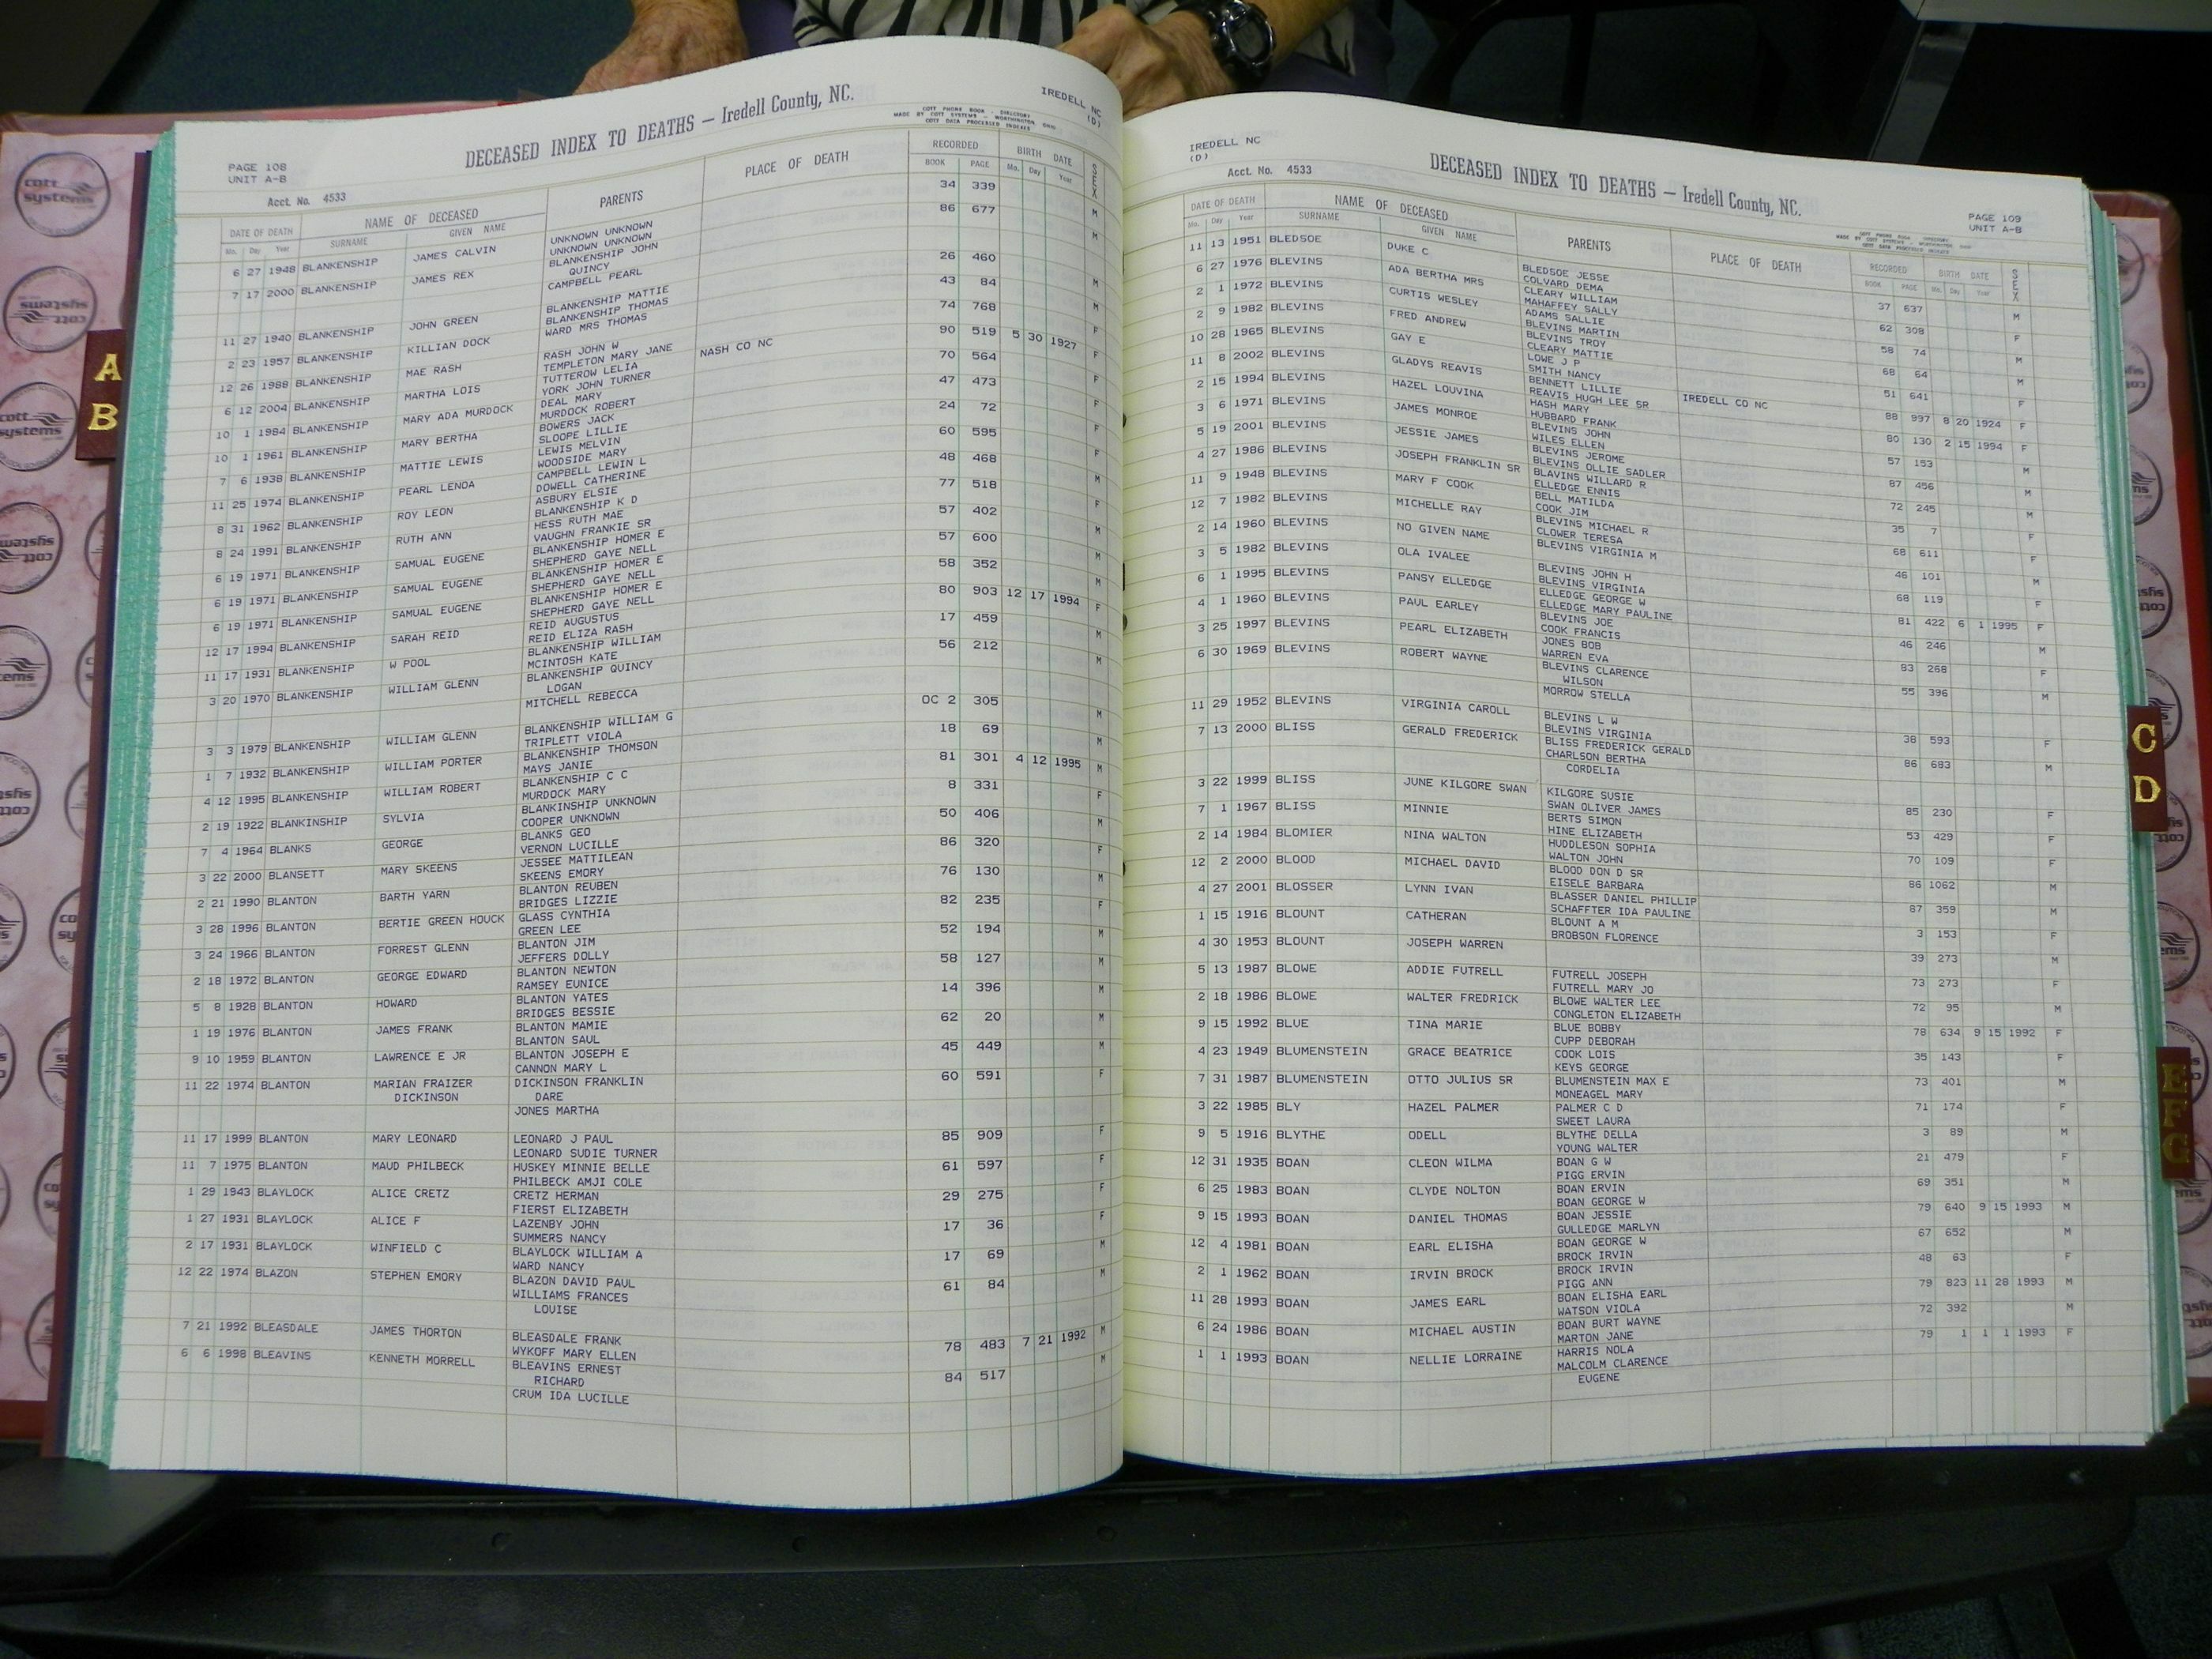 IREDELL NC
(D)
DECEASED INDEX TO DEATHS — Iredell County, NC.
COTT PHONE BOOK - DIRECTORY
MADE BY COTT SYSTEMS - WORTHINGTON, OHIO
COTT DATA PROCESSED INDEXES
PAGE 108
UNIT A-B
Acct. No. 4533
DATE OF DEATH NAME OF DECEASED PARENTS PLACE OF DEATH RECORDED BIRTH DATE SEX
Mo. Day Year SURNAME GIVEN NAME BOOK PAGE Mo. Day Year
6 27 1948 BLANKENSHIP JAMES CALVIN UNKNOWN UNKNOWN 34 339 M
UNKNOWN UNKNOWN
7 17 2000 BLANKENSHIP JAMES REX BLANKENSHIP JOHN 86 677 M
QUINCY
CAMPBELL PEARL
11 27 1940 BLANKENSHIP JOHN GREEN BLANKENSHIP MATTIE 26 460 M
BLANKENSHIP THOMAS
2 23 1957 BLANKENSHIP KILLIAN DOCK WARD MRS THOMAS 43 84 M
12 26 1988 BLANKENSHIP MAE RASH RASH JOHN W 74 768 F
TEMPLETON MARY JANE
6 12 2004 BLANKENSHIP MARTHA LOIS TUTTEROW LELIA NASH CO NC 90 519 5 30 1927 F
YORK JOHN TURNER
10 1 1984 BLANKENSHIP MARY ADA MURDOCK DEAL MARY 70 564 F
MURDOCK ROBERT
10 1 1961 BLANKENSHIP MARY BERTHA BOWERS JACK 47 473 F
SLOOPE LILLIE
7 6 1938 BLANKENSHIP MATTIE LEWIS LEWIS MELVIN 24 72 F
WOODSIDE MARY
11 25 1974 BLANKENSHIP PEARL LENOA CAMPBELL LEWIN L 60 595 F
DOWELL CATHERINE
8 31 1962 BLANKENSHIP ROY LEON ASBURY ELSIE 48 468 M
BLANKENSHIP K D
8 24 1991 BLANKENSHIP RUTH ANN HESS RUTH MAE 77 518 F
VAUGHN FRANKIE SR
6 19 1971 BLANKENSHIP SAMUAL EUGENE BLANKENSHIP HOMER E 57 402 M
SHEPHERD GAYE NELL
6 19 1971 BLANKENSHIP SAMUAL EUGENE BLANKENSHIP HOMER E 57 600 M
SHEPHERD GAYE NELL
6 19 1971 BLANKENSHIP SAMUAL EUGENE BLANKENSHIP HOMER E 58 352 M
SHEPHERD GAYE NELL
12 17 1994 BLANKENSHIP SARAH REID REID AUGUSTUS 80 903 12 17 1994 F
REID ELIZA RASH
11 17 1931 BLANKENSHIP W POOL BLANKENSHIP WILLIAM 17 459 M
MCINTOSH KATE
3 20 1970 BLANKENSHIP WILLIAM GLENN BLANKENSHIP QUINCY 56 212 M
LOGAN
MITCHELL REBECCA
3 3 1979 BLANKENSHIP WILLIAM GLENN BLANKENSHIP WILLIAM G OC 2 305 M
TRIPLETT VIOLA
1 7 1932 BLANKENSHIP WILLIAM PORTER BLANKENSHIP THOMSON 18 69 M
MAYS JANIE
4 12 1995 BLANKENSHIP WILLIAM ROBERT BLANKENSHIP C C 81 301 4 12 1995 M
MURDOCK MARY
2 19 1922 BLANKINSHIP SYLVIA BLANKINSHIP UNKNOWN 8 331 F
COOPER UNKNOWN
7 4 1964 BLANKS GEORGE BLANKS GEO 50 406 M
VERNON LUCILLE
3 22 2000 BLANSETT MARY SKEENS JESSEE MATTILEAN 86 320 F
SKEENS EMORY
2 21 1990 BLANTON BARTH YARN BLANTON REUBEN 76 130 M
BRIDGES LIZZIE
3 28 1996 BLANTON BERTIE GREEN HOUCK GLASS CYNTHIA 82 235 F
GREEN LEE
3 24 1966 BLANTON FORREST GLENN BLANTON JIM 52 194 M
JEFFERS DOLLY
2 18 1972 BLANTON GEORGE EDWARD BLANTON NEWTON 58 127 M
RAMSEY EUNICE
5 8 1928 BLANTON HOWARD BLANTON YATES 14 396 M
BRIDGES BESSIE
1 19 1976 BLANTON JAMES FRANK BLANTON MAMIE 62 20 M
BLANTON SAUL
9 10 1959 BLANTON LAWRENCE E JR BLANTON JOSEPH E 45 449 M
CANNON MARY L
11 22 1974 BLANTON MARIAN FRAIZER DICKINSON FRANKLIN 60 591 F
DICKINSON DARE
JONES MARTHA
11 17 1999 BLANTON MARY LEONARD LEONARD J PAUL 85 909 F
LEONARD SUDIE TURNER
11 7 1975 BLANTON MAUD PHILBECK HUSKEY MINNIE BELLE 61 597 F
PHILBECK AMJI COLE
1 29 1943 BLAYLOCK ALICE CRETZ CRETZ HERMAN 29 275 F
FIERST ELIZABETH
1 27 1931 BLAYLOCK ALICE F LAZENBY JOHN 17 36 F
SUMMERS NANCY
2 17 1931 BLAYLOCK WINFIELD C BLAYLOCK WILLIAM A 17 69 M
WARD NANCY
12 22 1974 BLAZON STEPHEN EMORY BLAZON DAVID PAUL 61 84 M
WILLIAMS FRANCES
LOUISE
7 21 1992 BLEASDALE JAMES THORTON BLEASDALE FRANK 78 483 7 21 1992 M
WYKOFF MARY ELLEN
6 6 1998 BLEAVINS KENNETH MORRELL BLEAVINS ERNEST 84 517 M
RICHARD
CRUM IDA LUCILLE
IREDELL NC
(D)
Acct. No. 4533
DECEASED INDEX TO DEATHS — Iredell County, NC.
PAGE 109
UNIT A-B
DATE OF DEATH NAME OF DECEASED PARENTS PLACE OF DEATH RECORDED BIRTH DATE SEX
Mo. Day Year SURNAME GIVEN NAME BOOK PAGE Mo. Day Year
11 13 1951 BLEDSOE DUKE C BLEDSOE JESSE 37 637 M
COLVARD DEMA
6 27 1976 BLEVINS ADA BERTHA MRS CLEARY WILLIAM 62 308 F
MAHAFFEY SALLY
2 1 1972 BLEVINS CURTIS WESLEY ADAMS SALLIE 58 74 M
BLEVINS MARTIN
2 9 1982 BLEVINS FRED ANDREW BLEVINS TROY 68 64 M
CLEARY MATTIE
10 28 1965 BLEVINS GAY E LOWE J P 51 641 F
SMITH NANCY
11 8 2002 BLEVINS GLADYS REAVIS BENNETT LILLIE IREDELL CO NC 88 997 8 20 1924 F
REAVIS HUGH LEE SR
2 15 1994 BLEVINS HAZEL LOUVINA HASH MARY 80 130 2 15 1994 F
HUBBARD FRANK
3 6 1971 BLEVINS JAMES MONROE BLEVINS JOHN 57 153 M
WILES ELLEN
5 19 2001 BLEVINS JESSIE JAMES BLEVINS JEROME 87 456 M
BLEVINS OLLIE SADLER
4 27 1986 BLEVINS JOSEPH FRANKLIN SR BLAVINS WILLARD R 72 245 M
ELLEDGE ENNIS
11 9 1948 BLEVINS MARY F COOK BELL MATILDA 35 7 F
COOK JIM
12 7 1982 BLEVINS MICHELLE RAY BLEVINS MICHAEL R 68 611 F
CLOWER TERESA
2 14 1960 BLEVINS NO GIVEN NAME BLEVINS VIRGINIA M 46 101 M
3 5 1982 BLEVINS OLA IVALEE BLEVINS JOHN H 68 119 F
BLEVINS VIRGINIA
6 1 1995 BLEVINS PANSY ELLEDGE ELLEDGE GEORGE W 81 422 6 1 1995 F
ELLEDGE MARY PAULINE
4 1 1960 BLEVINS PAUL EARLEY BLEVINS JOE 46 246 M
COOK FRANCIS
3 25 1997 BLEVINS PEARL ELIZABETH JONES BOB 83 268 F
WARREN EVA
6 30 1969 BLEVINS ROBERT WAYNE BLEVINS CLARENCE 55 396 M
WILSON
MORROW STELLA
11 29 1952 BLEVINS VIRGINIA CAROLL BLEVINS L W 38 593 F
BLEVINS VIRGINIA
7 13 2000 BLISS GERALD FREDERICK BLISS FREDERICK GERALD 86 683 M
CHARLSON BERTHA
CORDELIA
3 22 1999 BLISS JUNE KILGORE SWAN KILGORE SUSIE 85 230 F
SWAN OLIVER JAMES
7 1 1967 BLISS MINNIE BERTS SIMON 53 429 F
HINE ELIZABETH
2 14 1984 BLOMIER NINA WALTON HUDDLESON SOPHIA 70 109 F
WALTON JOHN
12 2 2000 BLOOD MICHAEL DAVID BLOOD DON D SR 86 1062 M
EISELE BARBARA
4 27 2001 BLOSSER LYNN IVAN BLASSER DANIEL PHILLIP 87 359 M
SCHAFFTER IDA PAULINE
1 15 1916 BLOUNT CATHERAN BLOUNT A M 3 153 F
BROBSON FLORENCE
4 30 1953 BLOUNT JOSEPH WARREN 39 273 M
5 13 1987 BLOWE ADDIE FUTRELL FUTRELL JOSEPH 73 273 F
FUTRELL MARY JO
2 18 1986 BLOWE WALTER FREDRICK BLOWE WALTER LEE 72 95 M
CONGLETON ELIZABETH
9 15 1992 BLUE TINA MARIE BLUE BOBBY 78 634 9 15 1992 F
CUPP DEBORAH
4 23 1949 BLUMENSTEIN GRACE BEATRICE COOK LOIS 35 143 F
KEYS GEORGE
7 31 1987 BLUMENSTEIN OTTO JULIUS SR BLUMENSTEIN MAX E 73 401 M
MONEAGEL MARY
3 22 1985 BLY HAZEL PALMER PALMER C D 71 174 F
SWEET LAURA
9 5 1916 BLYTHE ODELL BLYTHE DELLA 3 89 M
YOUNG WALTER
12 31 1935 BOAN CLEON WILMA BOAN G W 21 479 F
PIGG ERVIN
6 25 1983 BOAN CLYDE NOLTON BOAN ERVIN 69 351 M
BOAN GEORGE W
9 15 1993 BOAN DANIEL THOMAS BOAN JESSIE 79 640 9 15 1993 M
GULLEDGE MARLYN
12 4 1981 BOAN EARL ELISHA BOAN GEORGE W 67 652 M
BROCK IRVIN
2 1 1962 BOAN IRVIN BROCK BROCK IRVIN 48 63 F
PIGG ANN
11 28 1993 BOAN JAMES EARL BOAN ELISHA EARL 79 823 11 28 1993 M
WATSON VIOLA
6 24 1986 BOAN MICHAEL AUSTIN BOAN BURT WAYNE 72 392 M
MARTON JANE
1 1 1993 BOAN NELLIE LORRAINE HARRIS NOLA 79 1 1 1 1993 F
MALCOLM CLARENCE
EUGENE
A
B
C
D
E
F
G
cott
systems